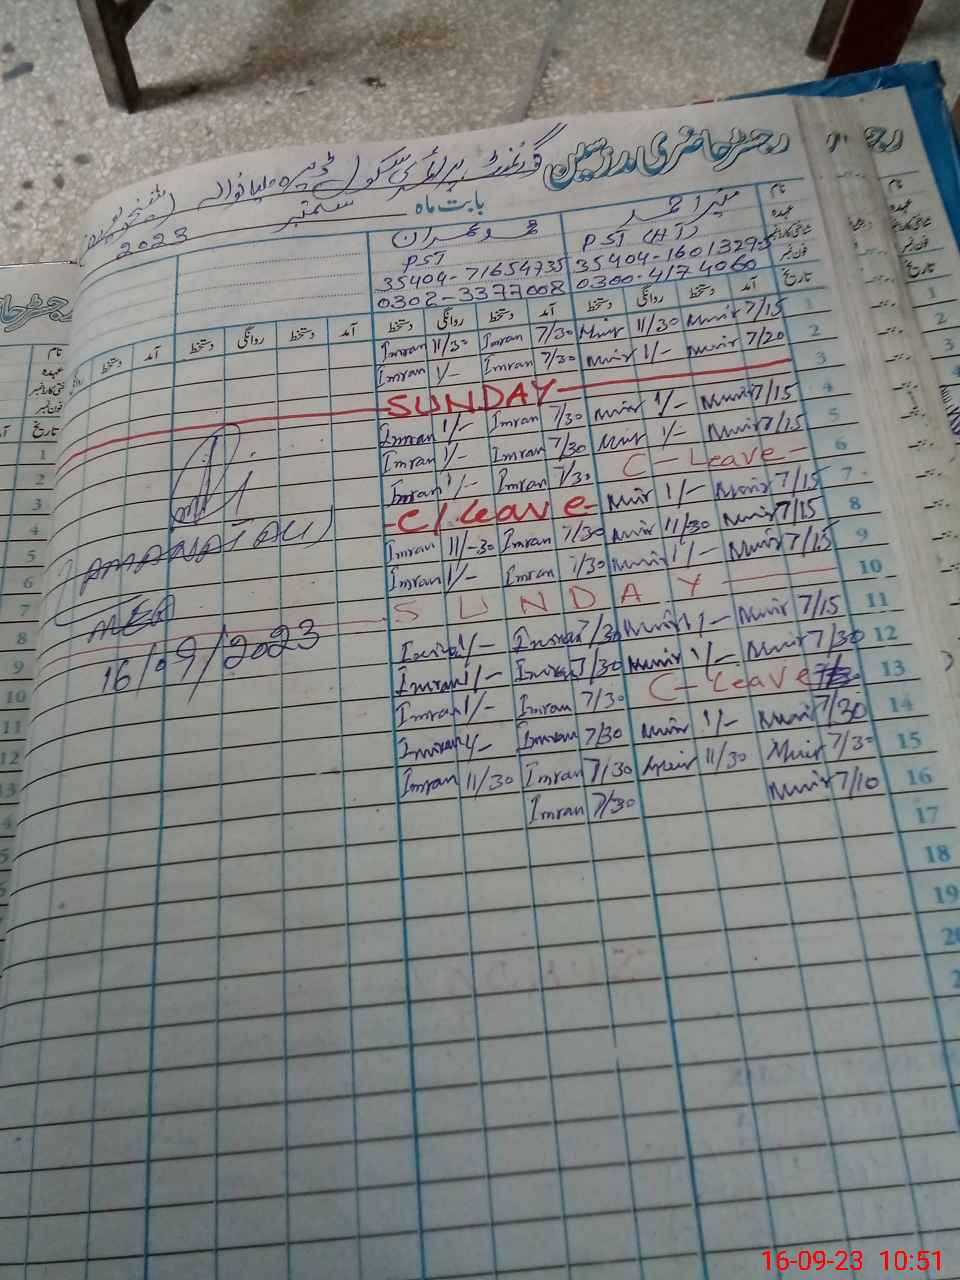 رجسٹر حاضری مدرسین
گورنمنٹ پرائمری سکول ڈیرہ
بابت ماہ ستمبر 2023
نام
منیر احمد
محمد عمران
عہدہ
PST (HT)
PST
شناختی کارڈ نمبر
35404-71654735
فون نمبر
0300-4174060
0302-3377008
تاریخ آمد دستخط روانگی دستخط آمد دستخط روانگی دستخط آمد دستخط روانگی دستخط
1 7/15 Munir 11/30 Munir 7/30 Imran 11/30 Imran
2 7/20 Munir 1/- Munir 7/30 Imran 1/- Imran
3 SUNDAY
4 7/15 Munir 1/- Munir 7/30 Imran 1/- Imran
5 7/15 Munir 1/- Munir 7/30 Imran 1/- Imran
6 C-Leave- 7/30 Imran 1/- Imran
7 7/15 Munir 1/- Munir -C/Leave-
8 7/15 Munir 11/30 Munir 7/30 Imran 11/-30 Imran
9 7/15 Munir 1/- Munir 7/30 Imran 1/- Imran
10 SUNDAY
11 7/15 Munir 1/- Munir 7/30 Imran 1/- Imran
12 7/30 Munir 1/- Munir 7/30 Imran 1/- Imran
13 C-Leave 7/30 Imran 1/- Imran
14 7/30 Munir 1/- Munir 7/30 Imran 1/- Imran
15 7/30 Munir 11/30 Munir 7/30 Imran 11/30 Imran
16 7/10 Munir 7/30 Imran
17
18
19
20
(AMANAT ALI)
MEA
16/09/2023
16-09-23 10:51